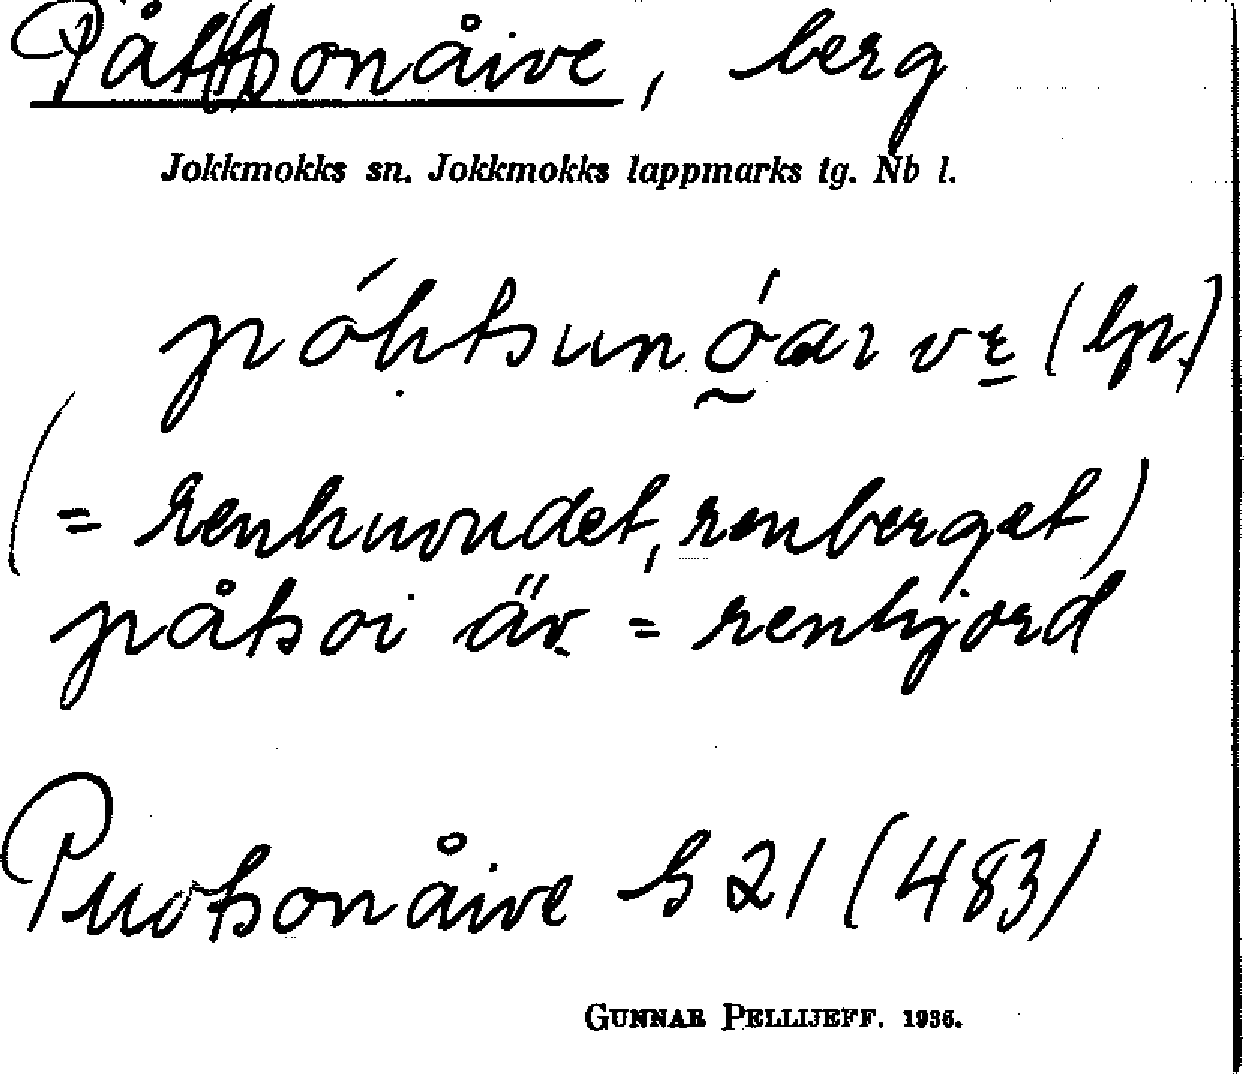 Påttsonåive, berg
Jokkmokks sn. Jokkmokks lappmarks tg. Nb l.
(lp.)
(= renhuvudet, renberget)
påtsoi äv. = renhjord
Puotsonåive b 21 (483)
GUNNAR PELLIJEFF. 1936.